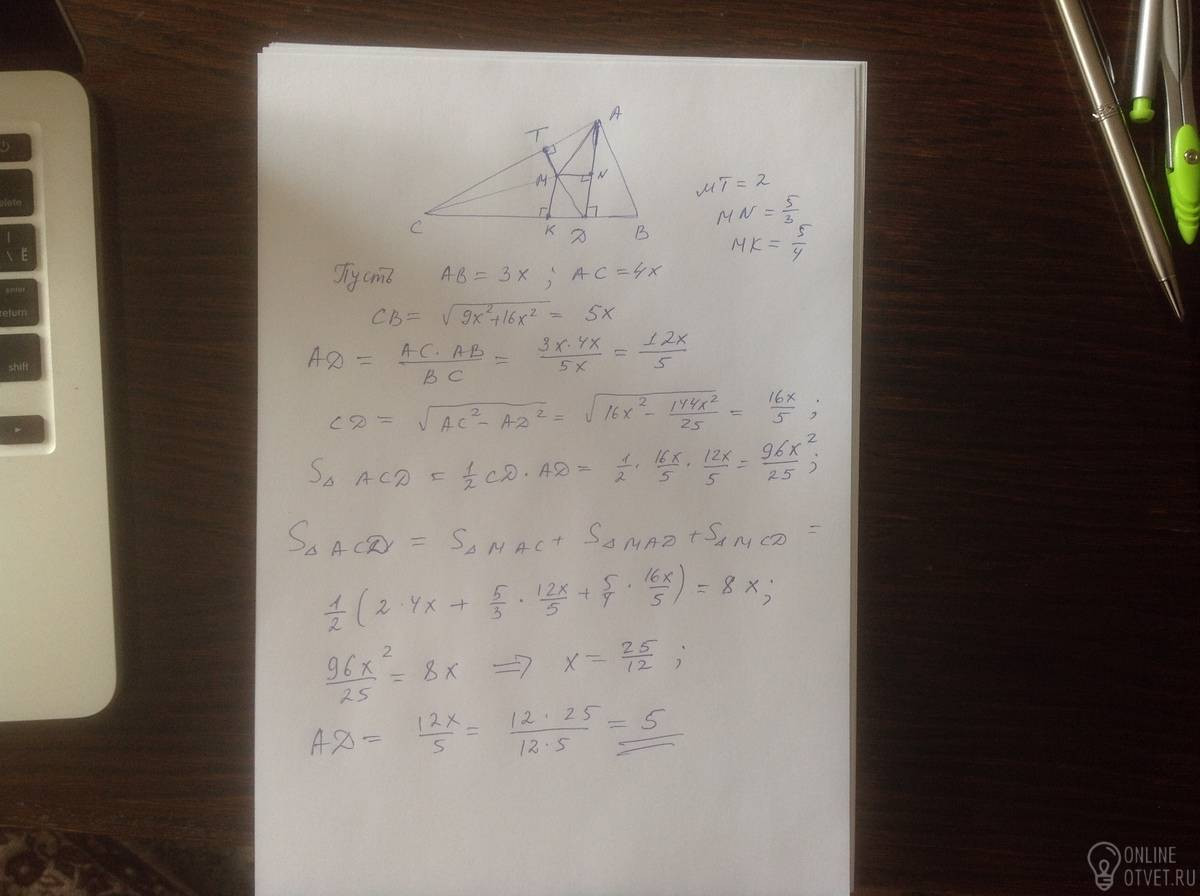 A
T
M
N
C
K
D
B
MT = 2
MN = 5/3
MK = 5/4
Пусть AB = 3x ; AC = 4x
CB = √(9x²+16x²) = 5x
AD = (AC · AB)/(BC) = (3x · 4x)/(5x) = 12x/5
CD = √(AC² − AD²) = √(16x² − 144x²/25) = 16x/5 ;
S△ ACD = 1/2 CD · AD = 1/2 · 16x/5 · 12x/5 = 96x²/25 ;
S△ ACD = S△ MAC + S△ MAD + S△ MCD =
1/2 (2 · 4x + 5/3 · 12x/5 + 5/4 · 16x/5) = 8x ;
96x²/25 = 8x ⇒ x = 25/12 ;
AD = 12x/5 = (12 · 25)/(12 · 5) = 5
delete
\ Ё
enter
return
shift
ONLINE
OTVET.RU